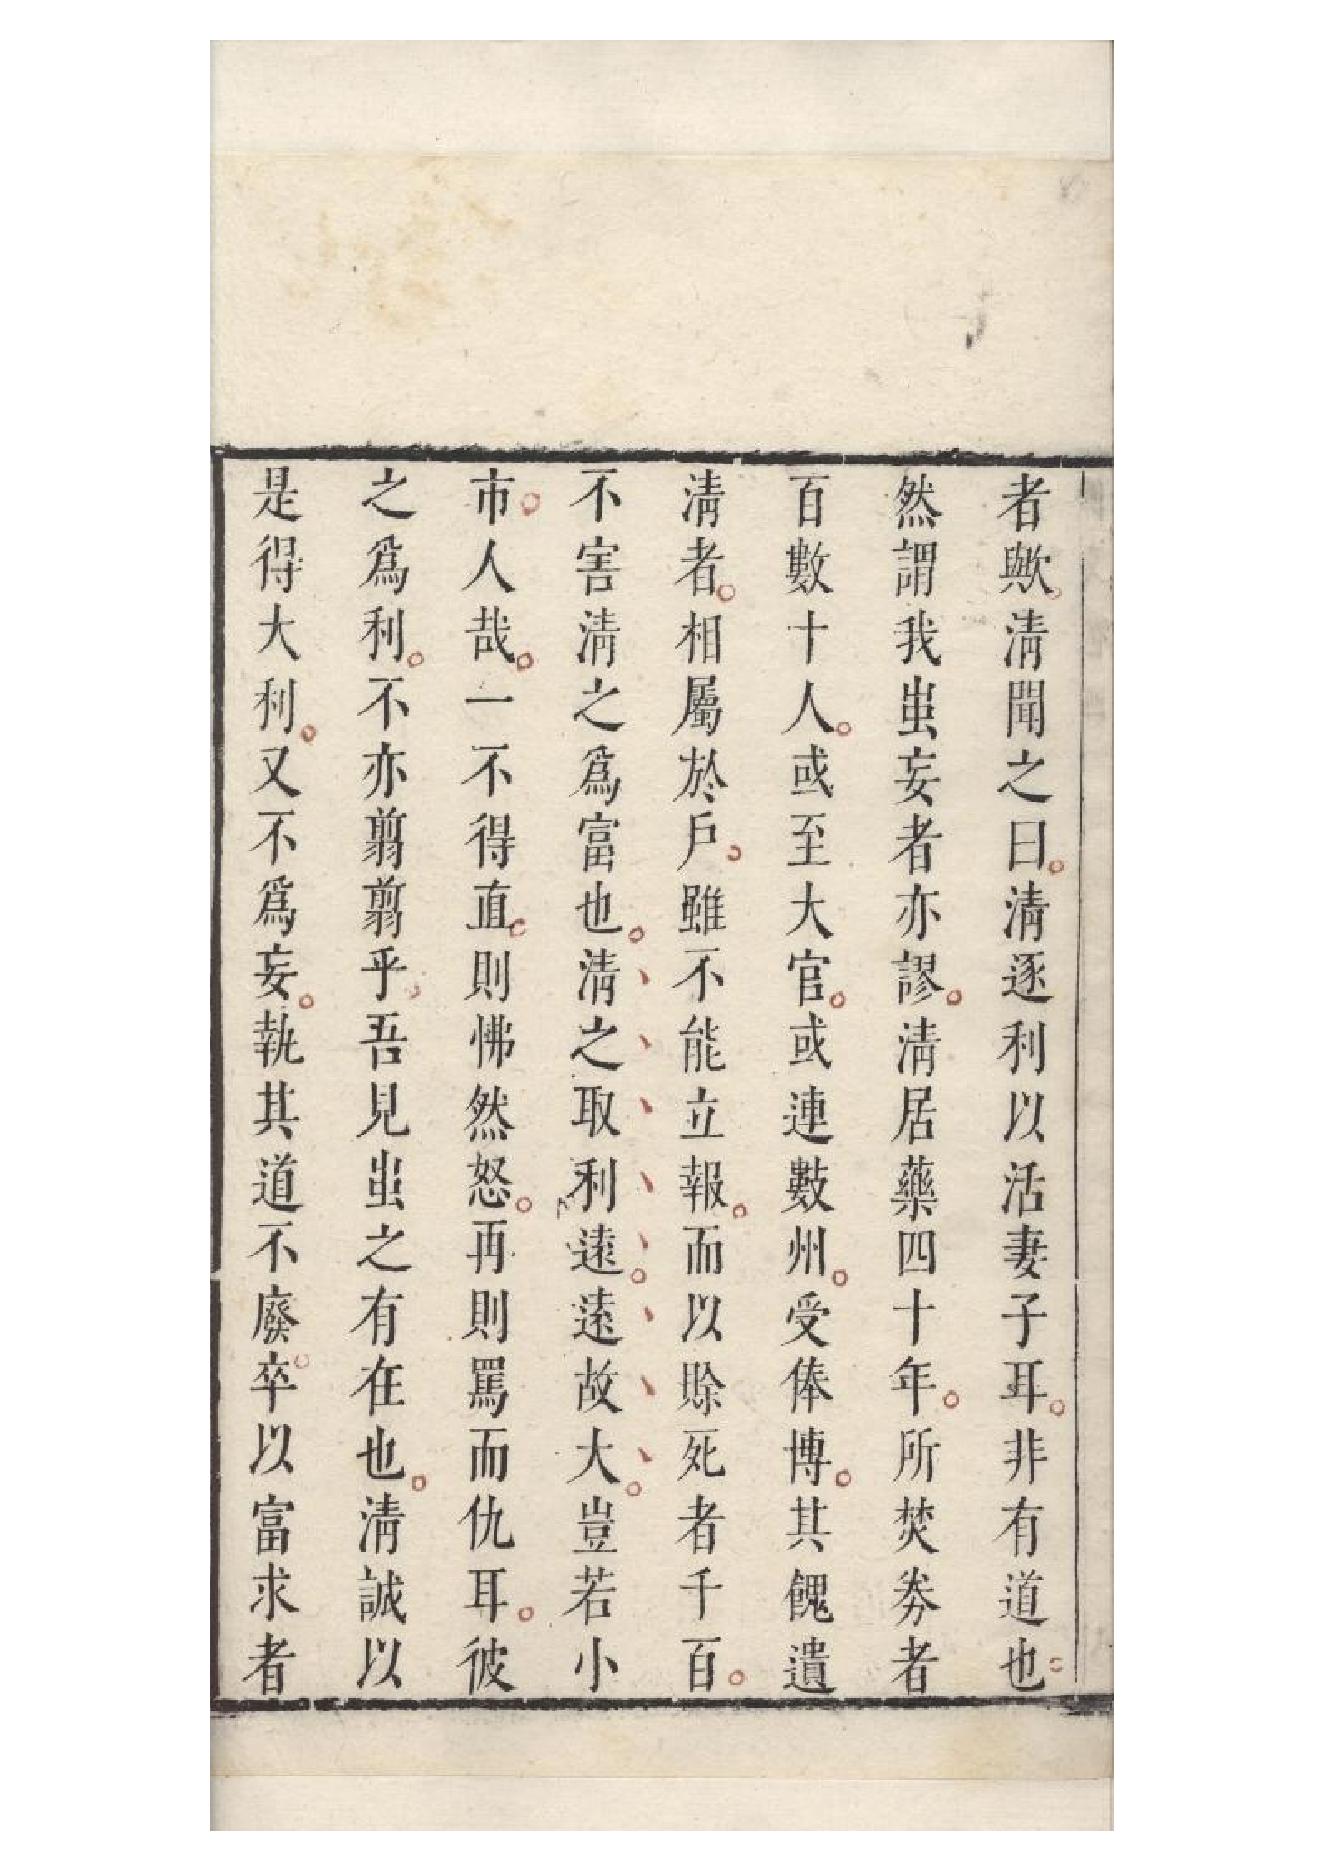 者歟清聞之曰清逐利以活妻子耳非有道也
然謂我蚩妄者亦謬清居藥四十年所焚劵者
百數十人或至大官或連數州受俸博其餽遺
清者相屬於戶雖不能立報而以賒死者千百
不害清之爲富也清之取利遠遠故大豈若小
市人哉一不得直則怫然怒再則罵而仇耳彼
之爲利不亦翦翦乎吾見蚩之有在也清誠以
是得大利又不爲妄執其道不廢卒以富求者